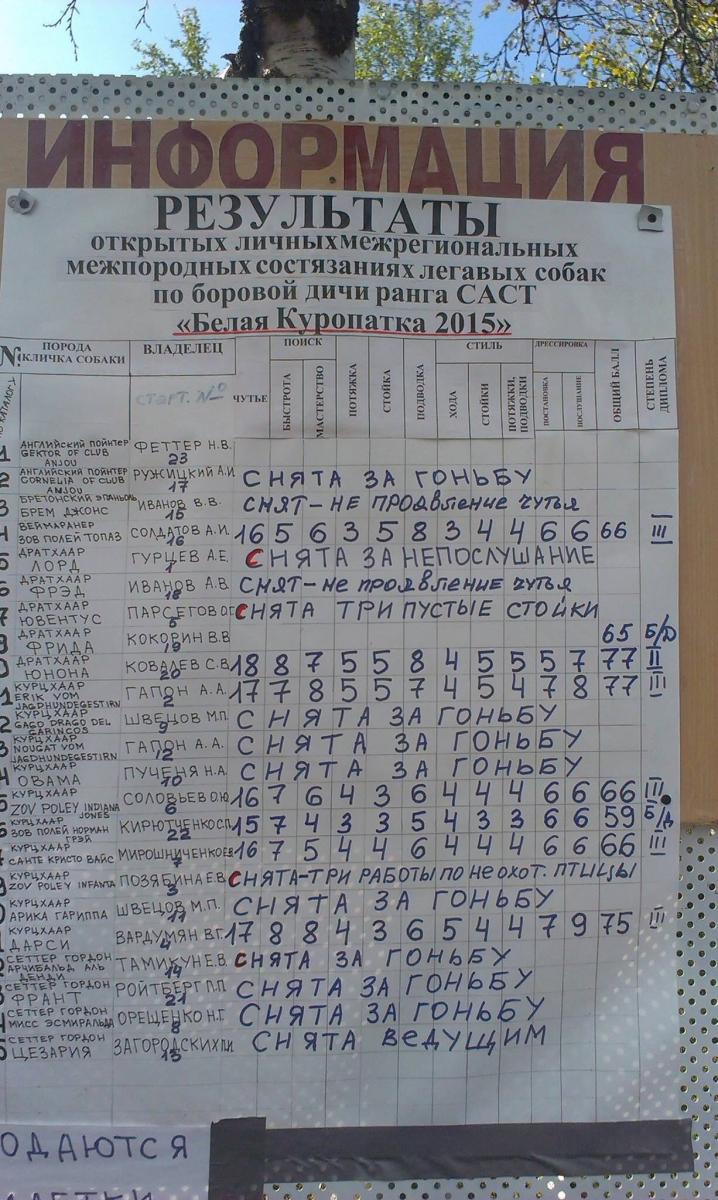 ИНФОРМАЦИЯ
РЕЗУЛЬТАТЫ
открытых личных межрегиональных
межпородных состязаниях легавых собак
по боровой дичи ранга САСТ
«Белая Куропатка 2015»
№ ПОРОДА КЛИЧКА СОБАКИ ВЛАДЕЛЕЦ ЧУТЬЕ ПОИСК БЫСТРОТА МАСТЕРСТВО ПОТЯЖКА СТОЙКА ПОДВОДКА СТИЛЬ ХОДА СТОЙКИ ПОТЯЖКИ, ПОДВОДКИ ДРЕССИРОВКА ПОСТАНОВКА ПОСЛУШАНИЕ ОБЩИЙ БАЛЛ СТЕПЕНЬ ДИПЛОМА
СТАРТ. №
1 АНГЛИЙСКИЙ ПОЙНТЕР GEKTOR OF CLUB ANJOU ФЕТТЕР Н.В. 23
2 АНГЛИЙСКИЙ ПОЙНТЕР CORNELIA OF CLUB ANJOU РУЖИЦКИЙ А.И 17 СНЯТА ЗА ГОНЬБУ
3 БРЕТОНСКИЙ ЭПАНЬОЛЬ БРЕМ ДЖОНС ИВАНОВ В.В. 15 СНЯТ-НЕ ПРОЯВЛЕНИЕ ЧУТЬЯ
4 ВЕЙМАРАНЕР ЗОВ ПОЛЕЙ ТОПАЗ СОЛДАТОВ А.И. 16 16 5 6 3 5 8 3 4 4 6 6 66 III
5 ДРАТХААР ЛОРД ГУРЦЕВ А.Е. 1 СНЯТА ЗА НЕПОСЛУШАНИЕ
6 ДРАТХААР ФРЭД ИВАНОВ А.В 18 СНЯТ-не проявление чутья
7 ДРАТХААР ЮВЕНТУС ПАРСЕГОВ 5 СНЯТА ТРИ ПУСТЫЕ СТОЙКИ
ДРАТХААР ФРИДА КОКОРИН В.В 19 65 Б/Д
ДРАТХААР ЮНОНА КОВАЛЕВ С.В 20 18 8 7 5 5 8 4 5 5 5 7 77 II
1 КУРЦХААР ERIK VOM JAGDHUNDEGESTIRN ГАПОН А.А. 2 17 7 8 5 5 7 4 5 4 7 8 77 III
2 КУРЦХААР GAGO DRAGO DEL GARINGOS ШВЕЦОВ М.П. 9 СНЯТА ЗА ГОНЬБУ
3 КУРЦХААР NOUGAT VOM JAGDHUNDEGESTIRN ГАПОН А.А. 12 СНЯТА ЗА ГОНЬБУ
4 КУРЦХААР ОБАМА ПУЧЕНЯ Н.А. 10 СНЯТА ЗА ГОНЬБУ
5 КУРЦХААР ZOV POLEY INDIANA JONES СОЛОВЬЕВ О.Ю 6 16 7 6 4 3 6 4 4 4 6 6 66 III
КУРЦХААР ЗОВ ПОЛЕЙ НОРМАН ГРЭЙ КИРЮТЧЕНКО С.П. 22 15 7 4 3 3 5 4 3 3 6 6 59 Б/Д
КУРЦХААР САНТЕ КРИСТО ВАЙС МИРОШНИЧЕНКО 7 16 7 5 4 4 6 4 4 4 6 6 66 III
КУРЦХААР ZOV POLEY INFANTA ПОЗЯБИНА Е.В. 3 СНЯТА-ТРИ РАБОТЫ ПО НЕ ОХОТ. ПТИЦЫ
КУРЦХААР АРИКА ГАРИППА ШВЕЦОВ М.П. 11 СНЯТА ЗА ГОНЬБУ
КУРЦХААР ДАРСИ ВАРДУМЯН В.Г. 4 17 8 8 4 3 6 5 4 4 7 9 75 III
СЕТТЕР ГОРДОН АРЧИБАЛЬД АЛЬ ДЕНДИ ТАМИКУН Е.В. 14 СНЯТА ЗА ГОНЬБУ
СЕТТЕР ГОРДОН ФРАНТ РОЙТБЕРГ П.П 21 СНЯТА ЗА ГОНЬБУ
СЕТТЕР ГОРДОН МИСС ЭСМИРАЛЬДА ОРЕЩЕНКО Н.Г 8 СНЯТА ЗА ГОНЬБУ
СЕТТЕР ГОРДОН ЦЕЗАРИЯ ЗАГОРОДСКИХ П.И 13 СНЯТА ВЕДУЩИМ
ОДАЮТСЯ